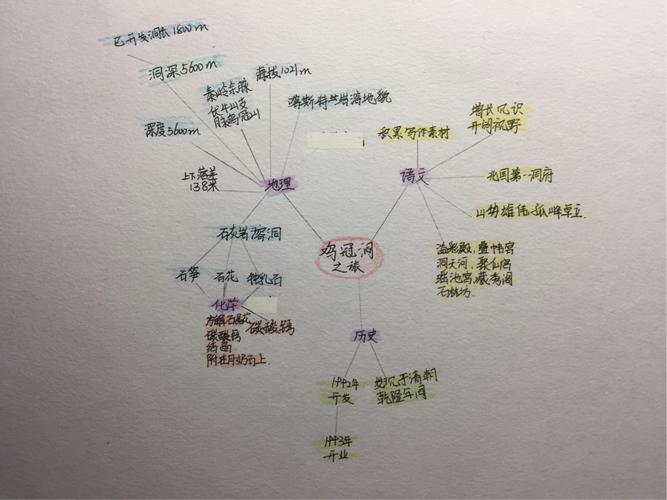 已开发洞长1800m
洞深5600m
秦岭东脉
伏牛山支
海拔1021m
喀斯特岩溶地貌
深度5600m
上下落差
138米
地理
积累写作素材
增长见识
开阔视野
语文
北国第一洞府
山势雄伟孤峰卓立
石灰岩溶洞
鸡冠洞
之旅
石笋
石花
钟乳石
溢彩殿,叠帏宫
洞天河,聚仙宫
瑶池宫,藏秀阁
石林坊
化学
方解石晶花
碳酸钙
碳酸钙
结晶
附在月奶石上
历史
1992年
开发
发现于清朝
乾隆年间
1993年
开业